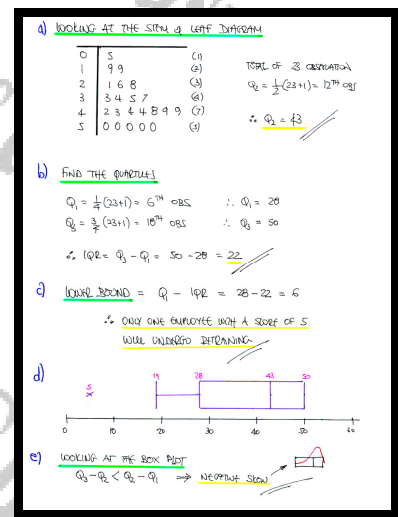 a) LOOKING AT THE STEM & LEAF DIAGRAM
0 | 5 (1)
1 | 9 9 (2)
2 | 1 6 8 (3)
3 | 3 4 5 7 (4)
4 | 2 3 4 4 8 9 9 (7)
5 | 0 0 0 0 0 (5)
TOTAL OF 23 OBSERVATION
Q₂ = ½(23+1) = 12TH OBS
∴ Q₂ = 43
b) FIND THE QUARTILES
Q₁ = ¼(23+1) = 6TH OBS ∴ Q₁ = 28
Q₃ = ¾(23+1) = 18TH OBS ∴ Q₃ = 50
∴ IQR = Q₃ - Q₁ = 50 - 28 = 22
c) LOWER BOUND = Q₁ - IQR = 28 - 22 = 6
∴ ONLY ONE EMPLOYEE WITH A SCORE OF 5
WILL UNDERGO RETRAINING
d)
5 19 28 43 50
0 10 20 30 40 50 60
e) LOOKING AT THE BOX PLOT
Q₃ - Q₂ < Q₂ - Q₁ ⇒ NEGATIVE SKEW